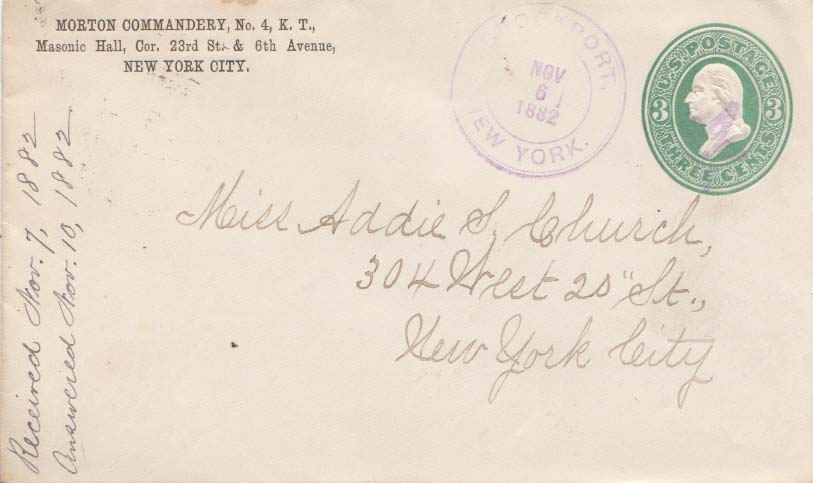 MORTON COMMANDERY, No. 4, K. T.,
Masonic Hall, Cor. 23rd St. & 6th Avenue,
NEW YORK CITY.
BROCKPORT,
NOV
6
1882
NEW YORK.
U.S. POSTAGE
3 3
THREE CENTS
Miss Addie S. Church,
304 West 20" St.,
New York City
Received Nov. 7, 1882
Answered Nov. 10, 1882